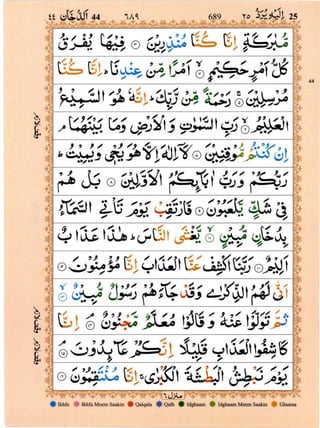 ٤٤ اَلدُّخَان 44 ٦٨٩ 689 ٢٥ اِلَيْهِ يُرَدُّ 25
مُّبٰرَكَةٍ اِنَّا كُنَّا مُنْذِرِيْنَ ۝٣ فِيْهَا يُفْرَقُ
كُلُّ اَمْرٍ حَكِيْمٍ ۝٤ اَمْرًا مِّنْ عِنْدِنَا ؕ اِنَّا كُنَّا
مُرْسِلِيْنَ ۝٥ رَحْمَةً مِّنْ رَّبِّكَ ؕ اِنَّهٗ هُوَ السَّمِيْعُ
الْعَلِيْمُ ۝٦ رَبِّ السَّمٰوٰتِ وَالْاَرْضِ وَمَا بَيْنَهُمَا ۘ
اِنْ كُنْتُمْ مُّوْقِنِيْنَ ۝٧ لَاۤ اِلٰهَ اِلَّا هُوَ يُحْيٖ وَيُمِيْتُ ؕ
رَبُّكُمْ وَرَبُّ اٰبَآئِكُمُ الْاَوَّلِيْنَ ۝٨ بَلْ هُمْ
فِيْ شَكٍّ يَّلْعَبُوْنَ ۝٩ فَارْتَقِبْ يَوْمَ تَاْتِي السَّمَآءُ
بِدُخَانٍ مُّبِيْنٍ ۝١٠ يَّغْشَى النَّاسَ ؕ هٰذَا عَذَابٌ
اَلِيْمٌ ۝١١ رَبَّنَا اكْشِفْ عَنَّا الْعَذَابَ اِنَّا مُؤْمِنُوْنَ ۝١٢
اَنّٰى لَهُمُ الذِّكْرٰى وَقَدْ جَآءَهُمْ رَسُوْلٌ مُّبِيْنٌ ۝١٣
ثُمَّ تَوَلَّوْا عَنْهُ وَقَالُوْا مُعَلَّمٌ مَّجْنُوْنٌ ۝١٤ اِنَّا
كَاشِفُوا الْعَذَابِ قَلِيْلًا اِنَّكُمْ عَآئِدُوْنَ ۝١٥
يَوْمَ نَبْطِشُ الْبَطْشَةَ الْكُبْرٰى ۚ اِنَّا مُنْتَقِمُوْنَ ۝١٦
منزل ٦
Ikhfa Ikhfa Meem Saakin Qalqala Qalb Idghaam Idghaam Meem Saakin Ghunna
44